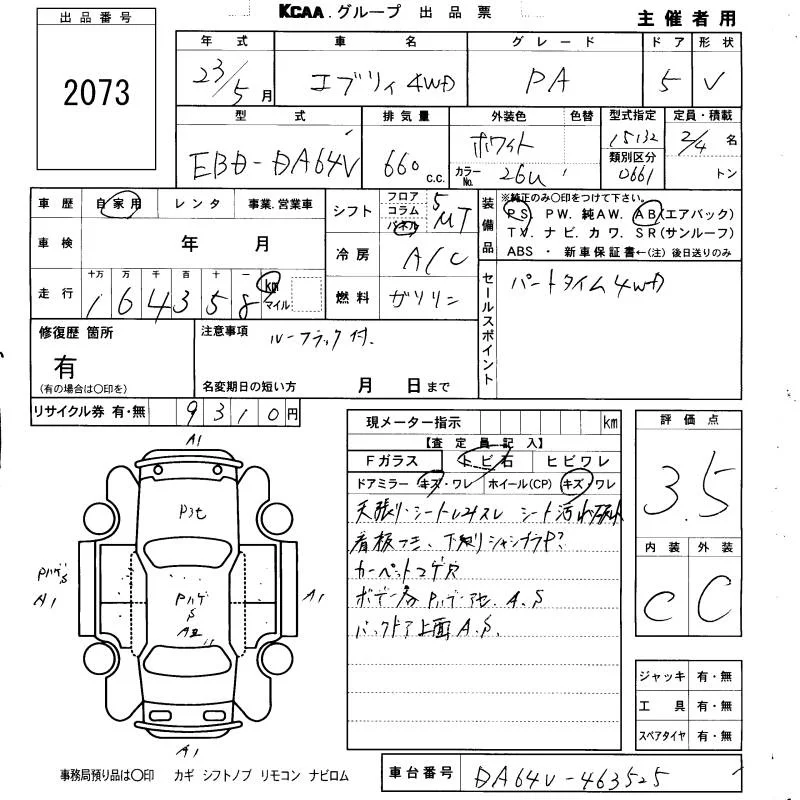 KCAA.グループ 出品票
主催者用
出品番号
2073
年式 車名 グレード ドア 形状
23/5月 エブリィ4WD PA 5 V
型式 排気量 外装色 色替 型式指定 定員・積載
EBD-DA64V 660 c.c. ホワイト 15132 2/4 名
カラーNo. 26U 類別区分 0661 トン
車歴 自家用 レンタ 事業.営業車
シフト フロア コラム パネル 5 MT
装備品 ※純正のみ○印をつけて下さい。
PS. PW. 純AW. AB(エアバック)
TV. ナビ. カワ. SR(サンルーフ)
ABS ・ 新車保証書←(注)後日送りのみ
車検 年 月
冷房 A/C
走行 十万 万 千 百 十 一
164358 km マイル
燃料 ガソリン
セールスポイント パートタイム4WD
修復歴 箇所
有
(有の場合は○印を)
注意事項 ルーフラック付.
名変期日の短い方 月 日まで
リサイクル券 有・無 9310円
現メーター指示 km
【査定員記入】
Fガラス トビ石 ヒビワレ
ドアミラー キズ・ワレ ホイール(CP) キズ・ワレ
天張り・シート シート
看板 下廻り
カーペットコゲ穴
ボデー各 Pハゲ A.S
バックドア上面A.S.
評価点
3.5
内装 外装
C C
ジャッキ 有・無
工具 有・無
スペアタイヤ 有・無
A1
Pハゲ S
A1
Pハゲ
S
A2
A1
A1
事務局預り品は○印 カギ シフトノブ リモコン ナビロム
車台番号 DA64V-463525